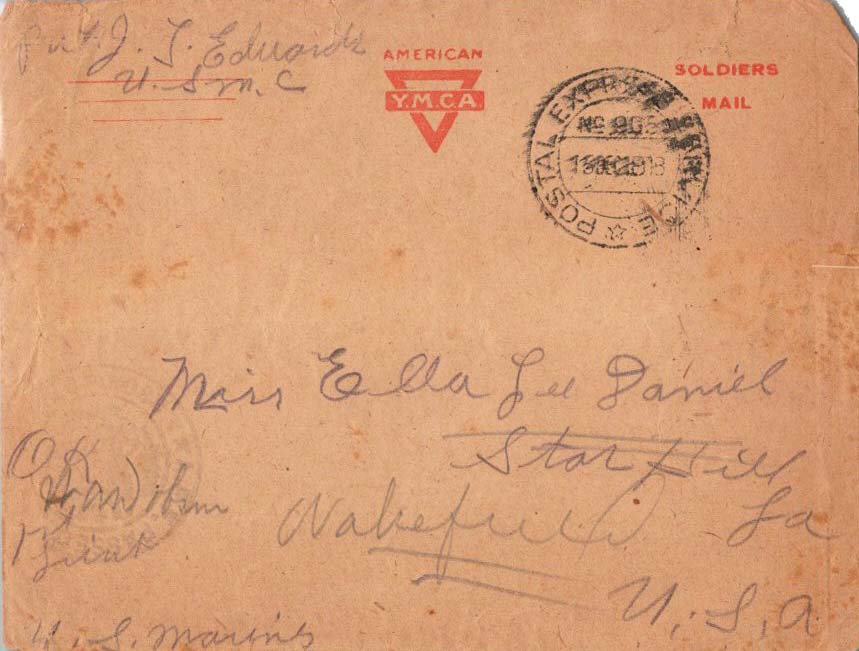 Pvt. J. T. Edwards
U.S.M.C
AMERICAN
Y.M.C.A.
SOLDIERS
MAIL
POSTAL EXPRESS SERVICE
Miss Ella Lee Daniel
Star Hill
Wakefield La
U.S.A
OK
U.S. Marines